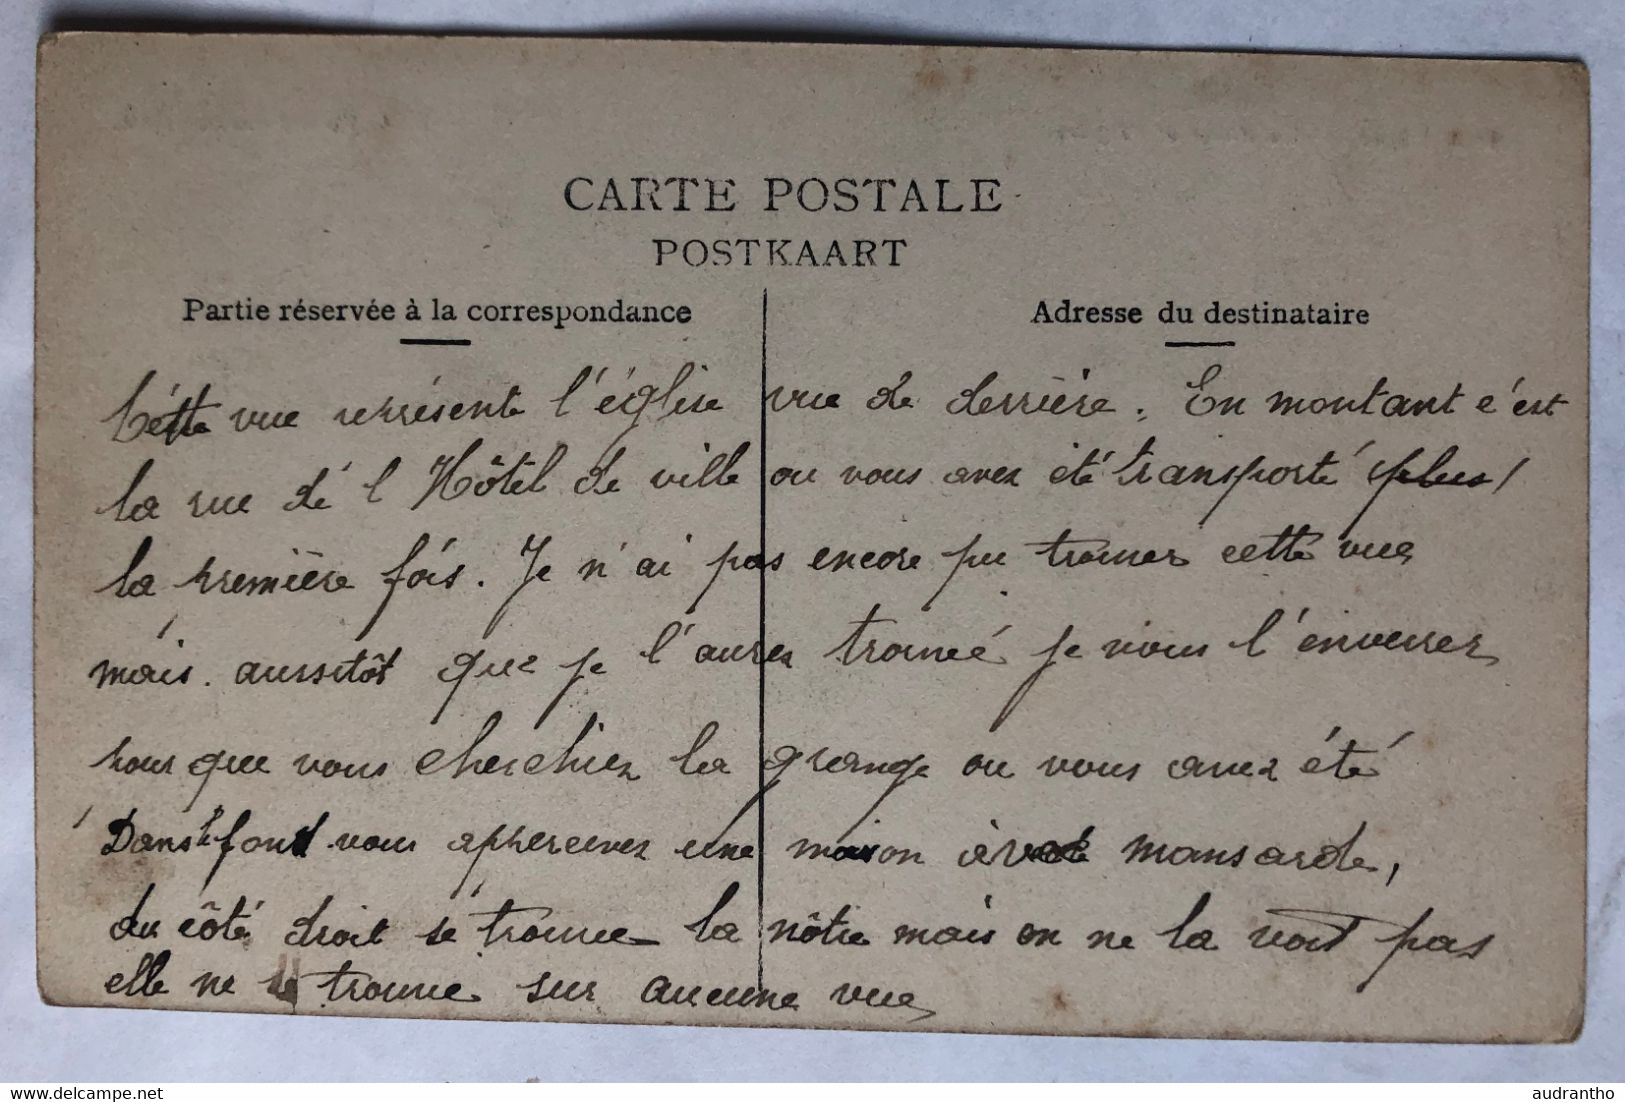 CARTE POSTALE
POSTKAART
Partie réservée à la correspondance
Adresse du destinataire
Cétte vue représente l'église vue de derrière. En montant c'est
la rue dé l'Hôtel de ville ou vous avez été transporté plus
la première fois. Je n'ai pas encore pu trouver cette vue
mais. aussitôt que je l'aurez trouvé je vous l'enverrez
pour que vous cherchiez la grange ou vous avez été
Dans le fond vous appercevez une maison avec mansarde,
du côté droit se trouve la nôtre mais on ne la voit pas
elle ne se trouve sur aucune vue
delcampe.net
audrantho